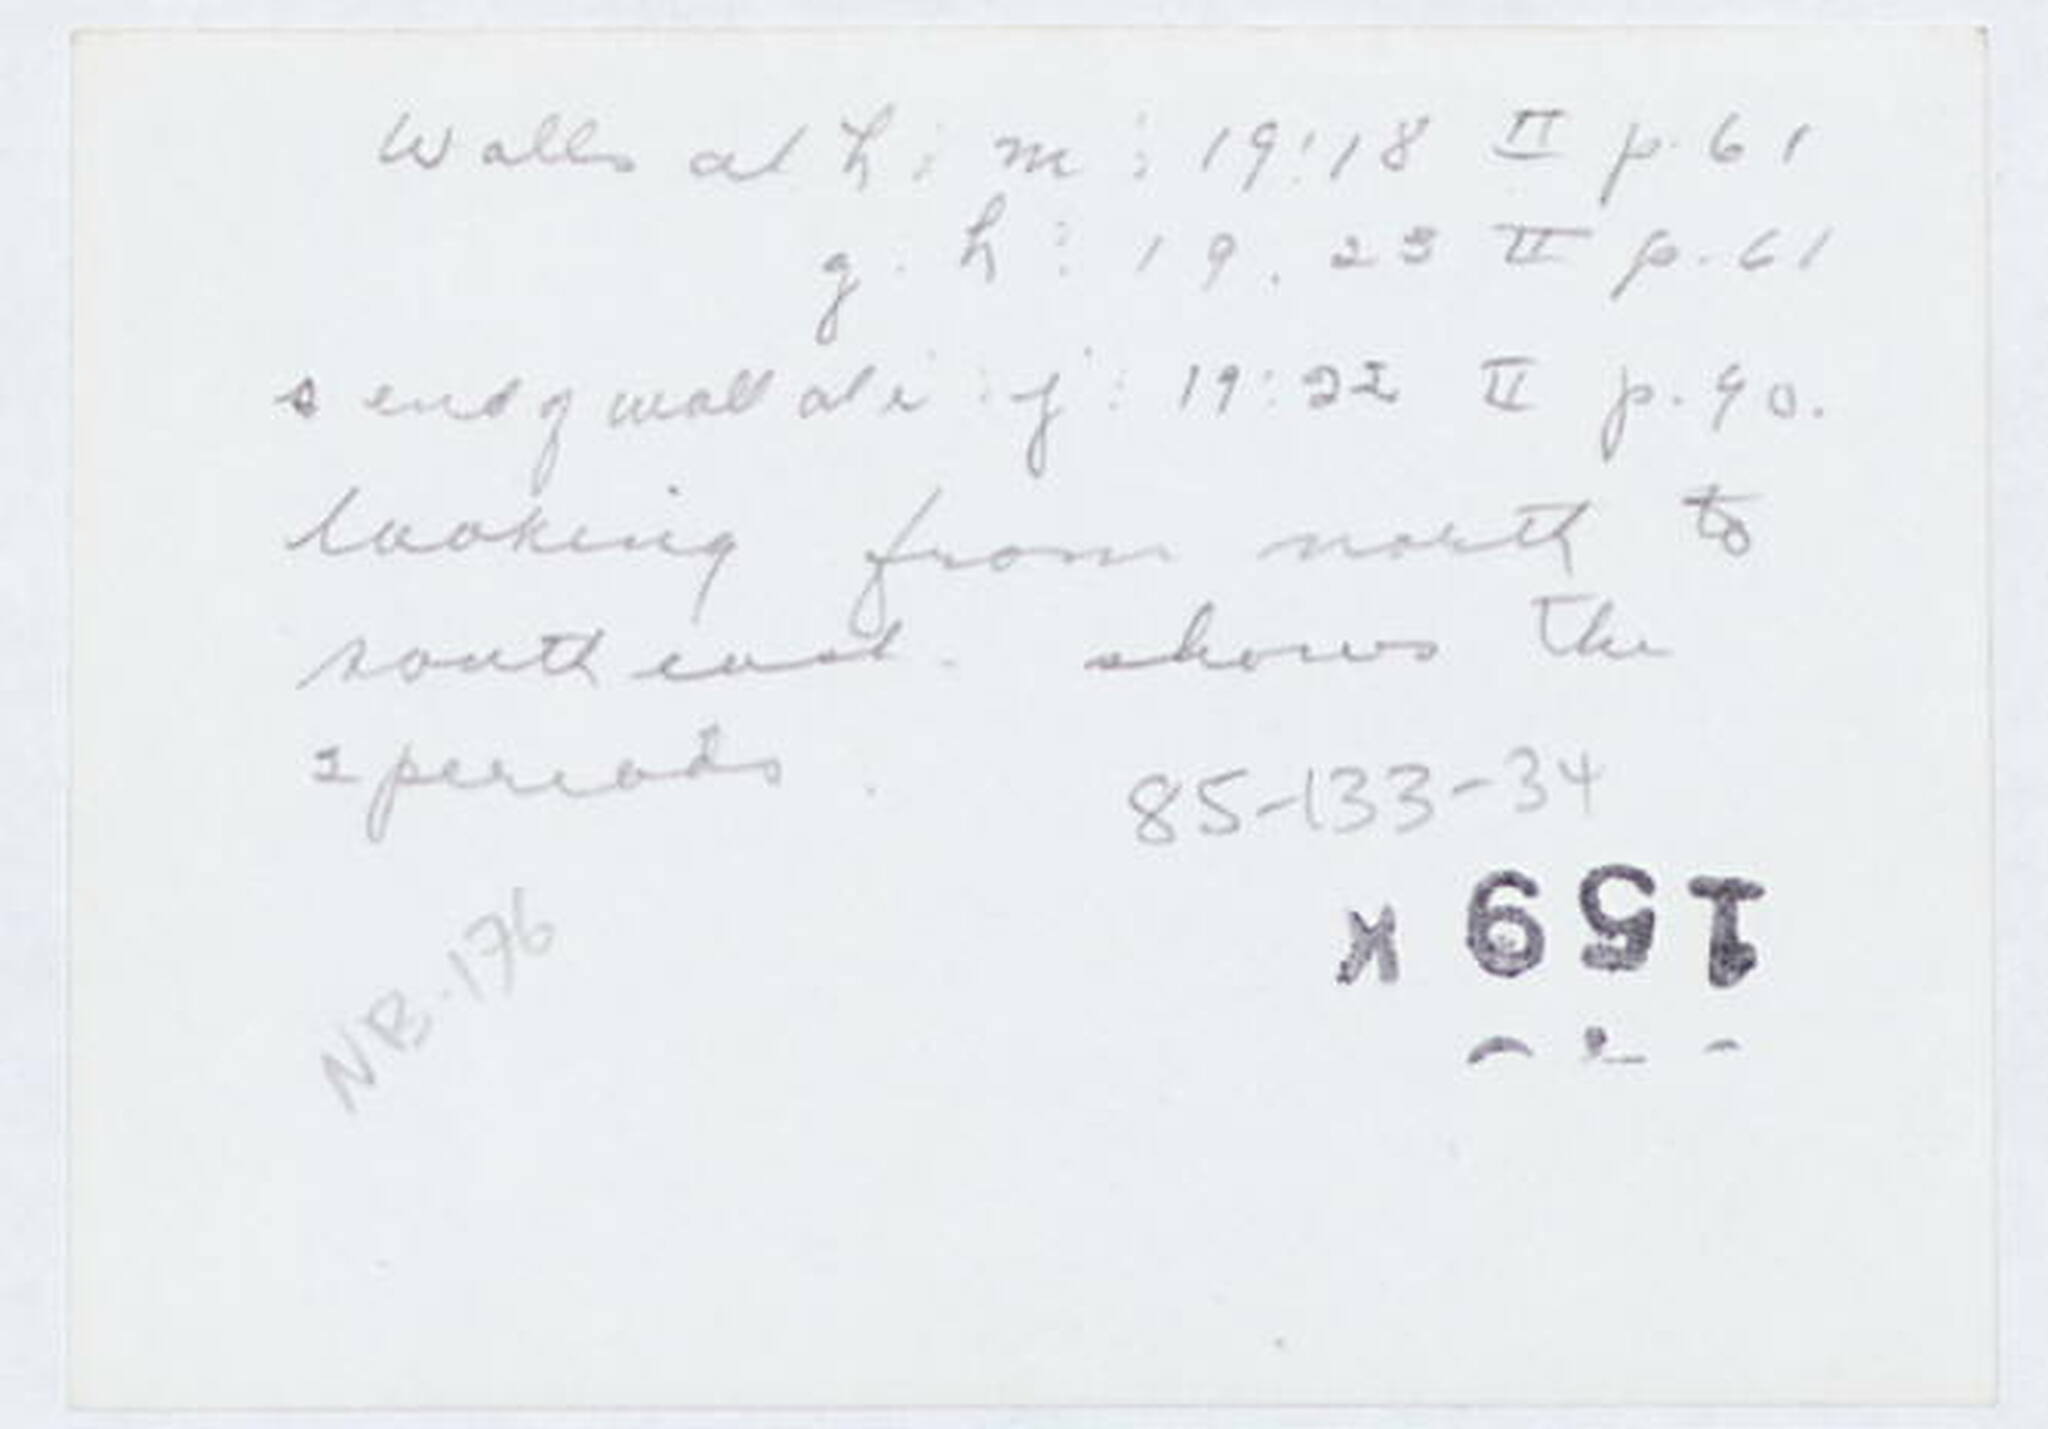 Walls at h : m : 19:18 II p. 61
g. h : 19. 23 II p. 61
s end of wall at i : j : 19:22 II p. 90.
looking from north to
south east. shows the
2 periods.
85-133-34
159 K
NB-176